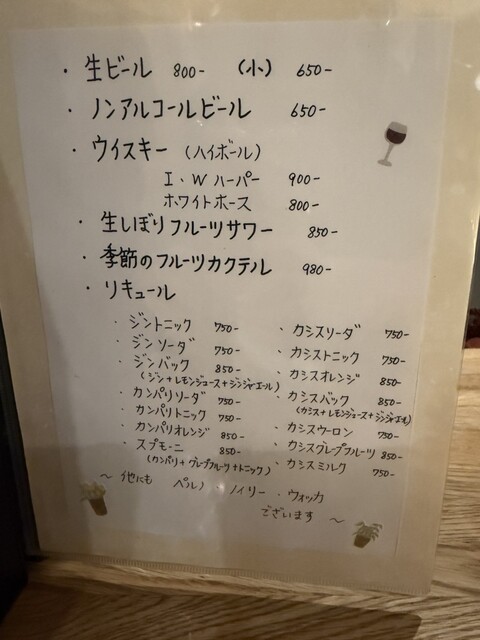 ・生ビール 800- (小) 650-
・ノンアルコールビール 650-
・ウイスキー (ハイボール)
I.Wハーパー 900-
ホワイトホース 800-
・生しぼりフルーツサワー 850-
・季節のフルーツカクテル 980-
・リキュール
・ジントニック 750-
・ジンソーダ 750-
・ジンバック 850-
(ジン+レモンジュース+ジンジャエール)
・カンパリソーダ 750-
・カンパリトニック 750-
・カンパリオレンジ 850-
・スプモーニ 850-
(カンパリ+グレープフルーツ+トニック)
・カシスソーダ 750-
・カシストニック 750-
・カシスオレンジ 850-
・カシスバック 850-
(カシス+レモンジュース+ジンジャエール)
・カシスウーロン 750-
・カシスグレープフルーツ 850-
・カシスミルク 750-
～他にも ペルノ ノイリー・ウォッカ
ございます～